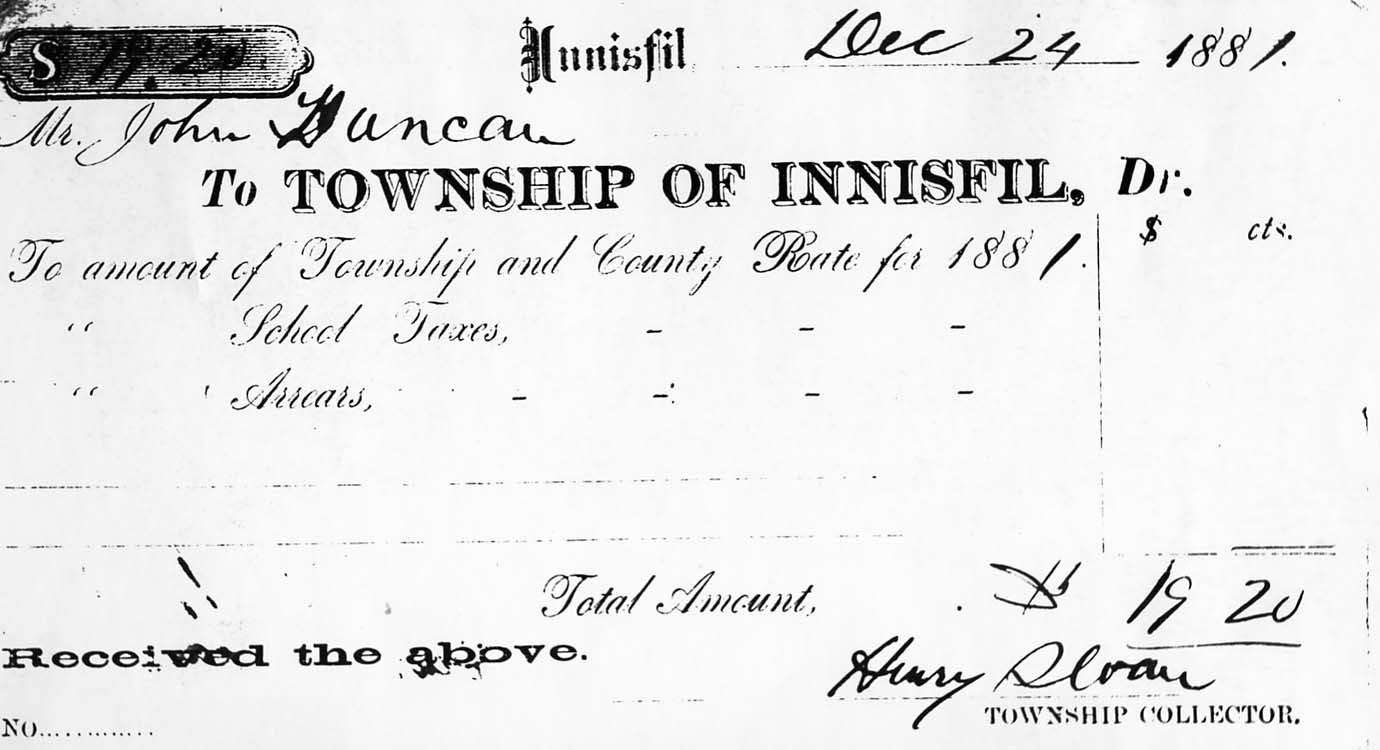 $ 19.20.
Innisfil Dec 24 1881.
Mr. John Duncan
To TOWNSHIP OF INNISFIL, Dr.
$ cts.
To amount of Township and County Rate for 1881.
“ School Taxes, - - -
“ Arrears, - - - -
Total Amount, $ 19 20
Received the above.
Henry Sloan
TOWNSHIP COLLECTOR.
NO...........